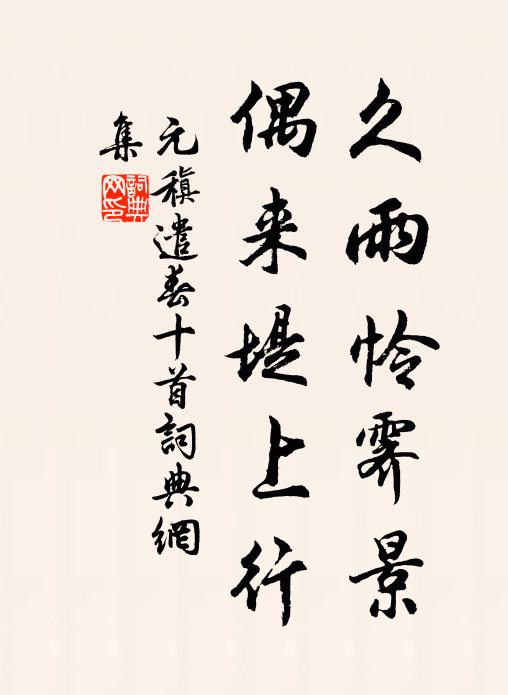 久雨怜霁景
偶来堤上行
元稹遣春十首詞典網
集
詞典網印